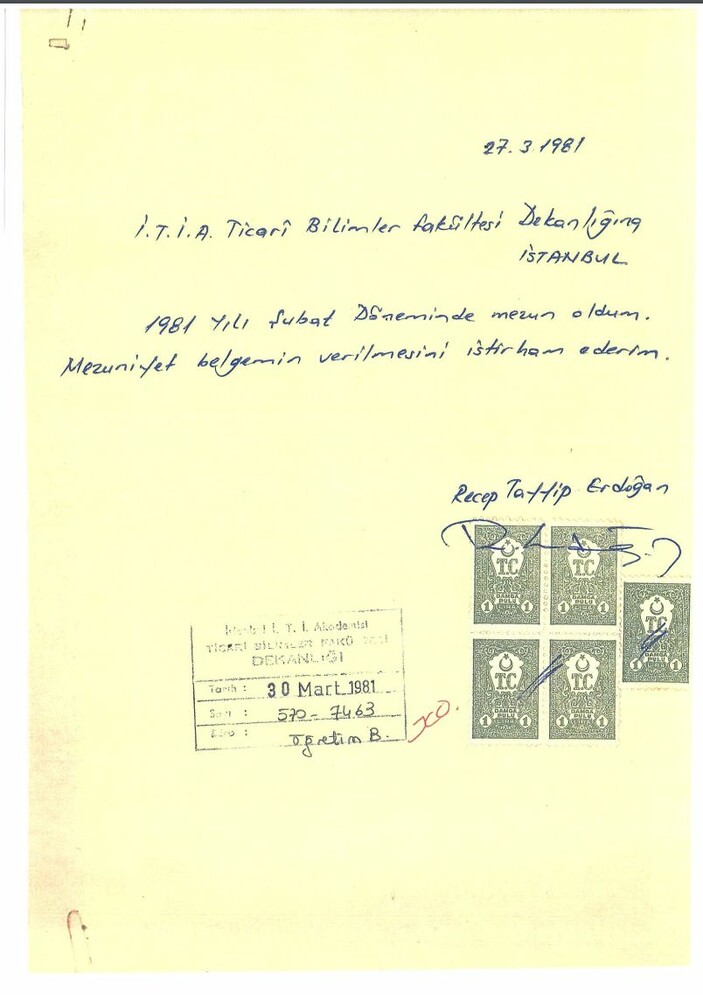 27.3.1981
İ.T.İ.A. Ticarî Bilimler fakültesi Dekanlığına
İSTANBUL
1981 Yılı Şubat Döneminde mezun oldum.
Mezuniyet belgemin verilmesini istirham ederim.
Recep Tayyip Erdoğan
T.C. T.C.
DAMGA PULU DAMGA PULU
1 1 1 1
T.C.
DAMGA PULU
1 1
T.C. T.C.
DAMGA PULU DAMGA PULU
1 1 1 1
İ. T. İ. Akademisi
TİCARİ BİLİMLER
DEKANLIĞI
Tarih : 30 Mart 1981
Sayı : 570-7463
öğretim B.